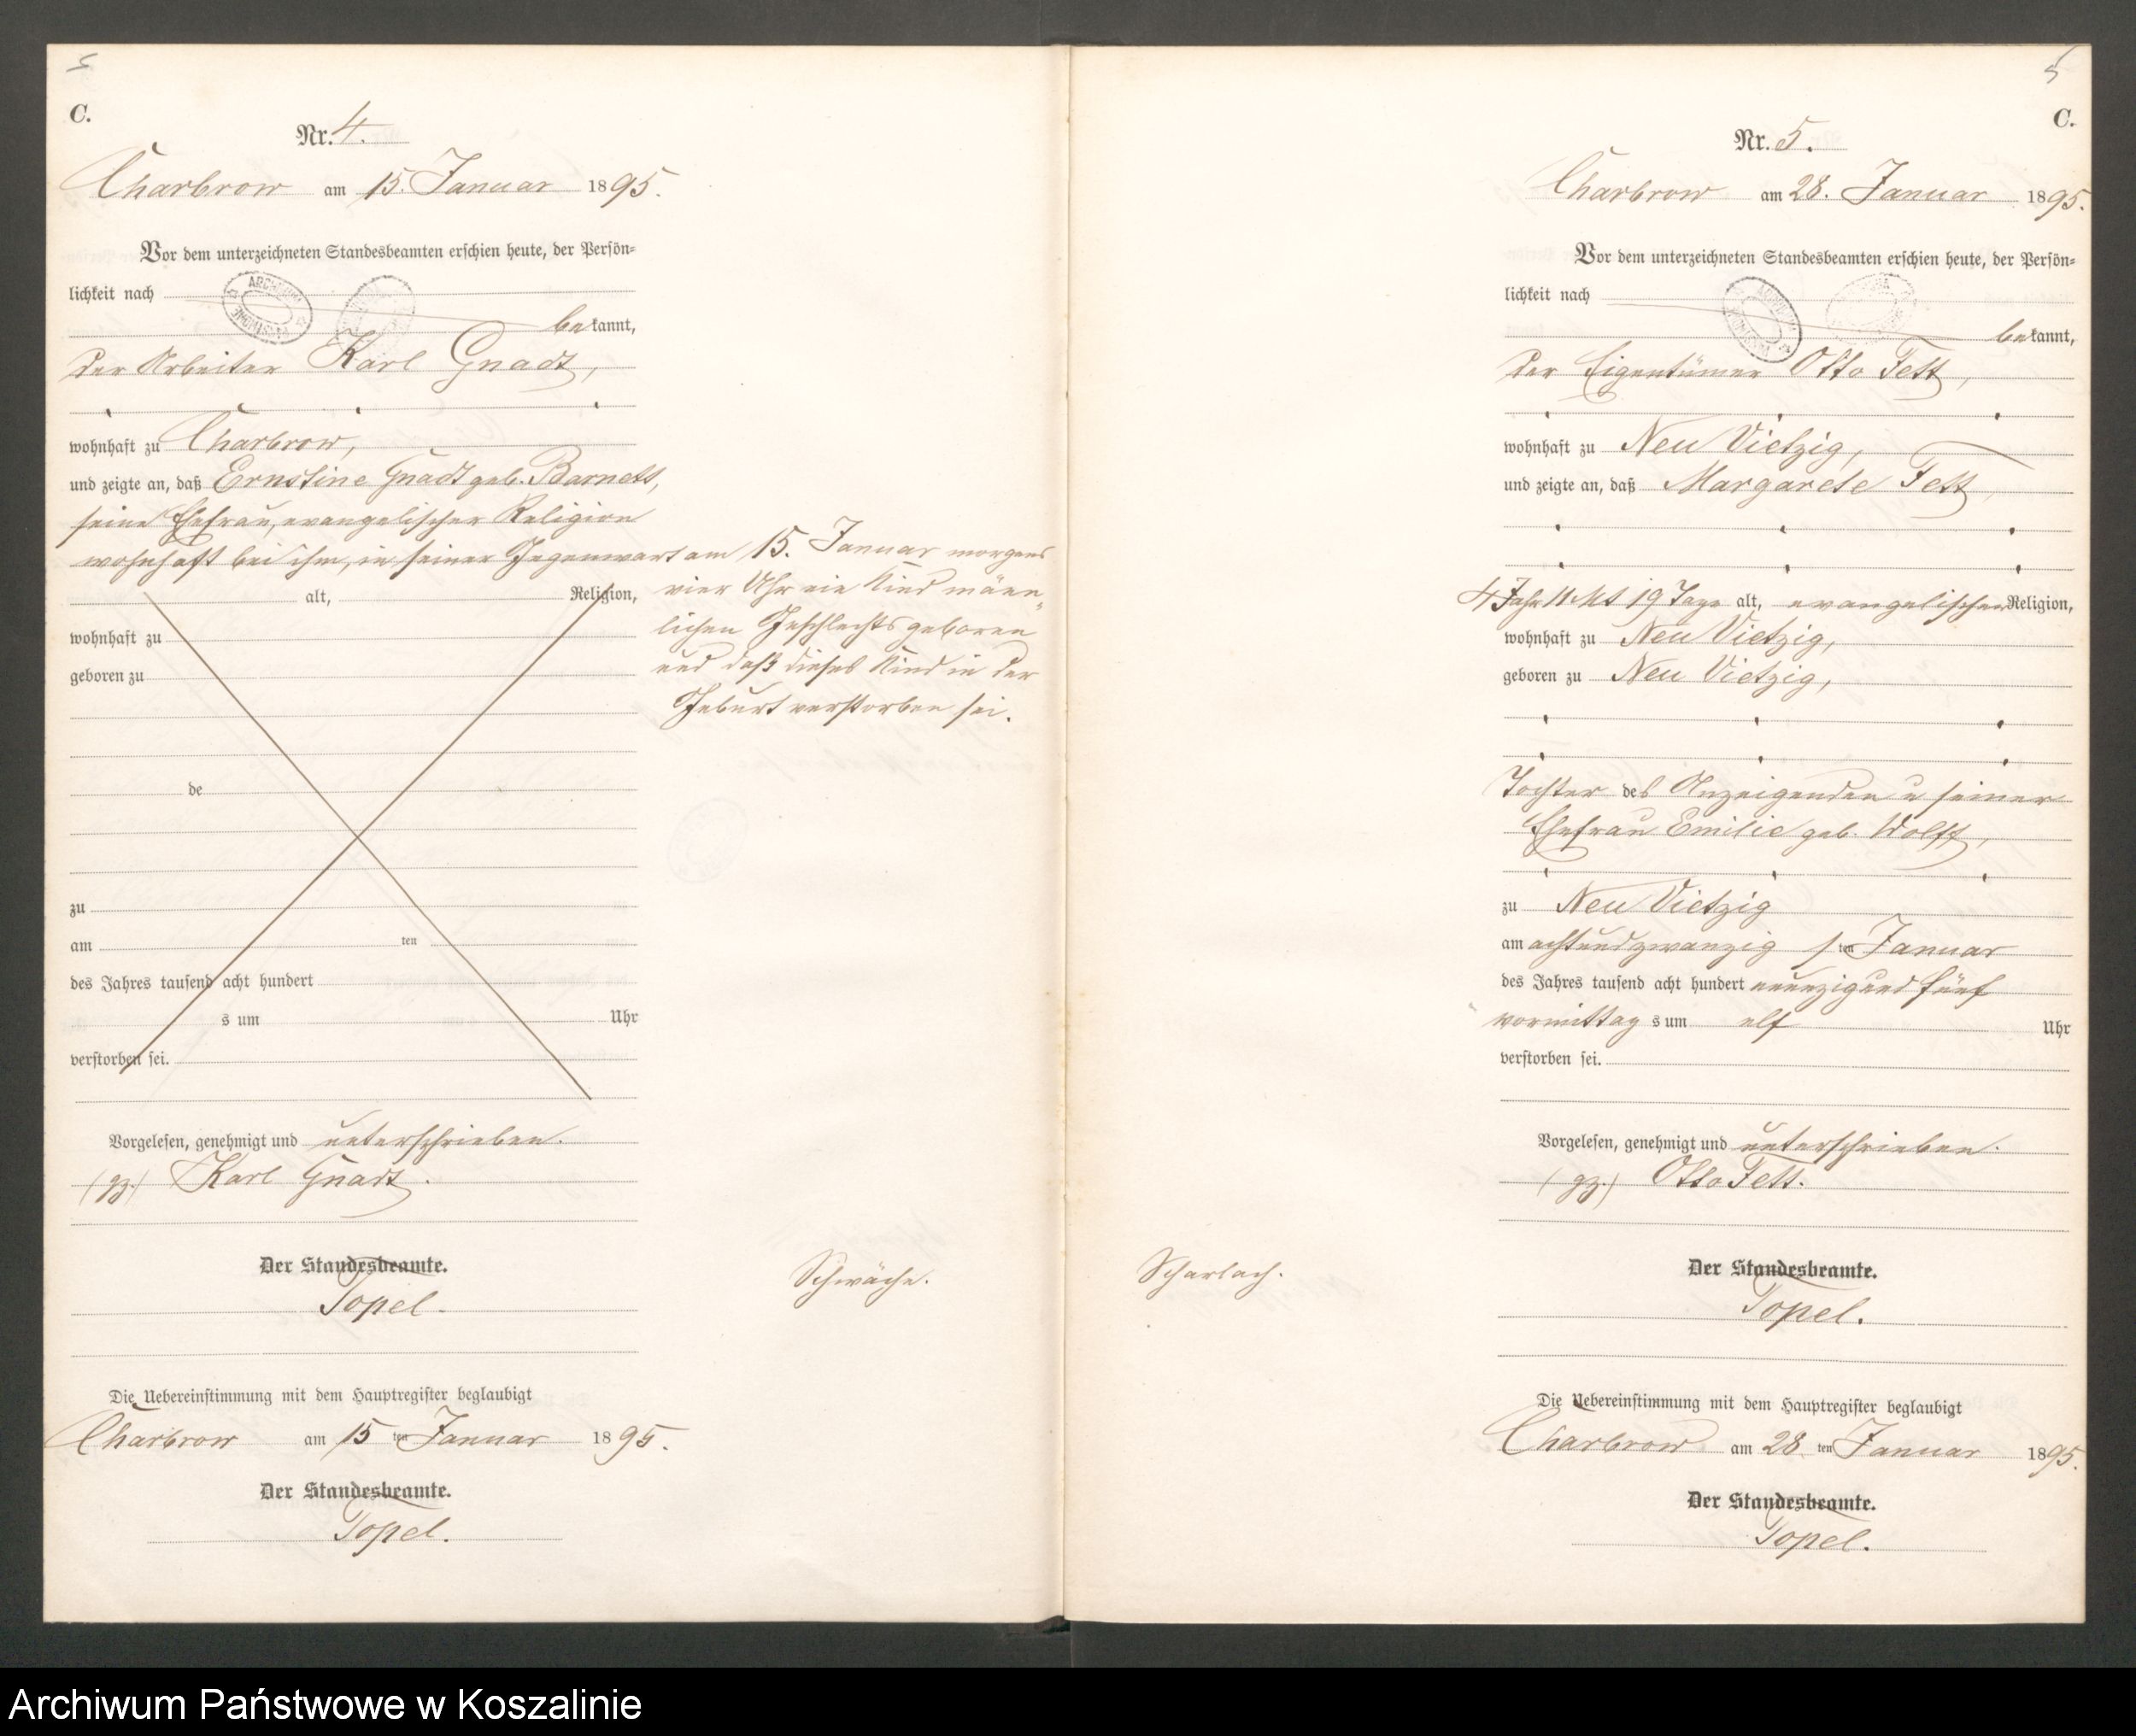 5
C.
Nr. 4.
Charbrow am 15. Januar 1895.
Vor dem unterzeichneten Standesbeamten erschien heute, der Persön-
lichkeit nach
bekannt,
der Arbeiter Karl Gnadt,
wohnhaft zu Charbrow,
und zeigte an, daß Ernstine Gnadt geb. Barnets,
seine Ehefrau, evangelischer Religion
wohnhaft bei ihm, in seiner Gegenwart am 15. Januar morgens
vier Uhr ein Kind männ-
lichen Geschlechts geboren
und daß dieses Kind in der
Geburt verstorben sei.
alt, Religion,
wohnhaft zu
geboren zu
de
zu
am ten
des Jahres tausend acht hundert
s um Uhr
verstorben sei.
Vorgelesen, genehmigt und unterschrieben.
(gz.) Karl Gnadt.
Der Standesbeamte.
Topel.
Schwäche.
Die Uebereinstimmung mit dem Hauptregister beglaubigt
Charbrow am 15 ten Januar 1895.
Der Standesbeamte.
Topel.
5
C.
Nr. 5.
Charbrow am 28. Januar 1895.
Vor dem unterzeichneten Standesbeamten erschien heute, der Persön-
lichkeit nach
bekannt,
der Eigentümer Otto Fett,
wohnhaft zu Neu Vietzig,
und zeigte an, daß Margarete Fett,
4 Jahr 11 Mt 19 Tage alt, evangelischer Religion,
wohnhaft zu Neu Vietzig,
geboren zu Neu Vietzig,
Tochter des Anzeigenden u seiner
Ehefrau Emilie geb. Wolff,
zu Neu Vietzig
am achtundzwanzig sten Januar
des Jahres tausend acht hundert neunzig und fünf
vormittag s um elf Uhr
verstorben sei.
Vorgelesen, genehmigt und unterschrieben.
(gz.) Otto Fett.
Der Standesbeamte.
Topel.
Scharlach.
Die Uebereinstimmung mit dem Hauptregister beglaubigt
Charbrow am 28 ten Januar 1895.
Der Standesbeamte.
Topel.
Archiwum Państwowe w Koszalinie